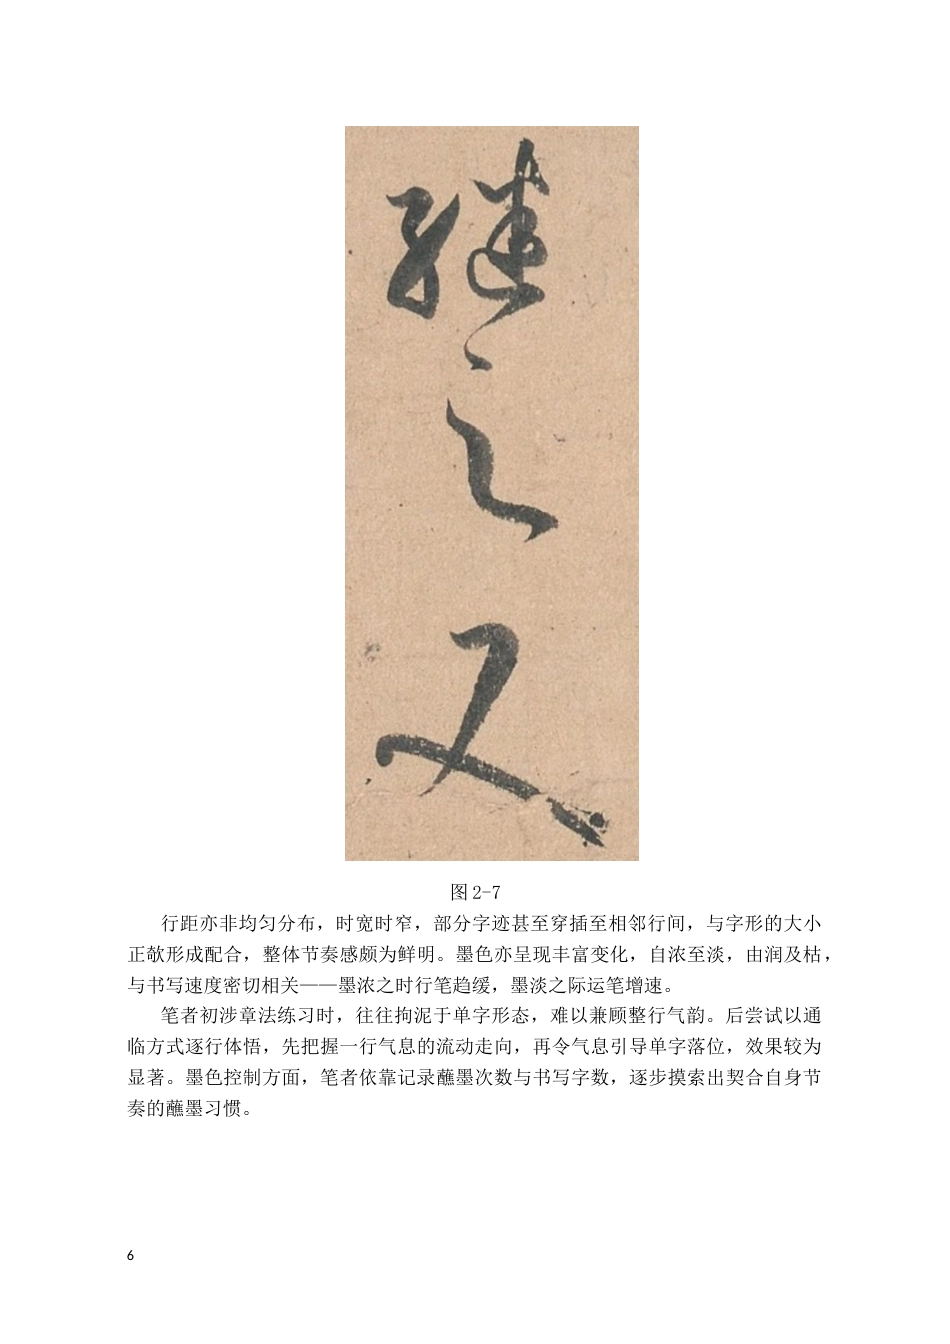 继
之
又
图 2-7
行距亦非均匀分布，时宽时窄，部分字迹甚至穿插至相邻行间，与字形的大小
正欹形成配合，整体节奏感颇为鲜明。墨色亦呈现丰富变化，自浓至淡，由润及枯，
与书写速度密切相关——墨浓之时行笔趋缓，墨淡之际运笔增速。
笔者初涉章法练习时，往往拘泥于单字形态，难以兼顾整行气韵。后尝试以通
临方式逐行体悟，先把握一行气息的流动走向，再令气息引导单字落位，效果较为
显著。墨色控制方面，笔者依靠记录蘸墨次数与书写字数，逐步摸索出契合自身节
奏的蘸墨习惯。
6